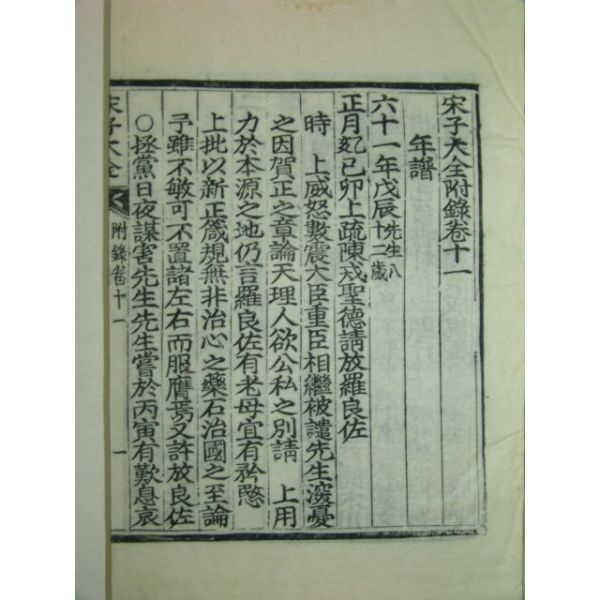 宋子大全附錄卷十一
年譜
六十一年戊辰先生八十二歲
正月朔己卯上疏陳戒聖德請放羅良佐
時 上威怒數震大臣重臣相繼被譴先生深憂
之因賀正之章論天理人欲公私之別請 上用
力於本源之地仍言羅良佐有老母宜有矜愍
上批以新正箴規無非治心之藥石治國之至論
予雖不敏可不置諸左右而服膺焉又許放良佐
○拯黨日夜謀害先生先生嘗於丙寅有歎息哀
宋子大全 附錄卷十一 一